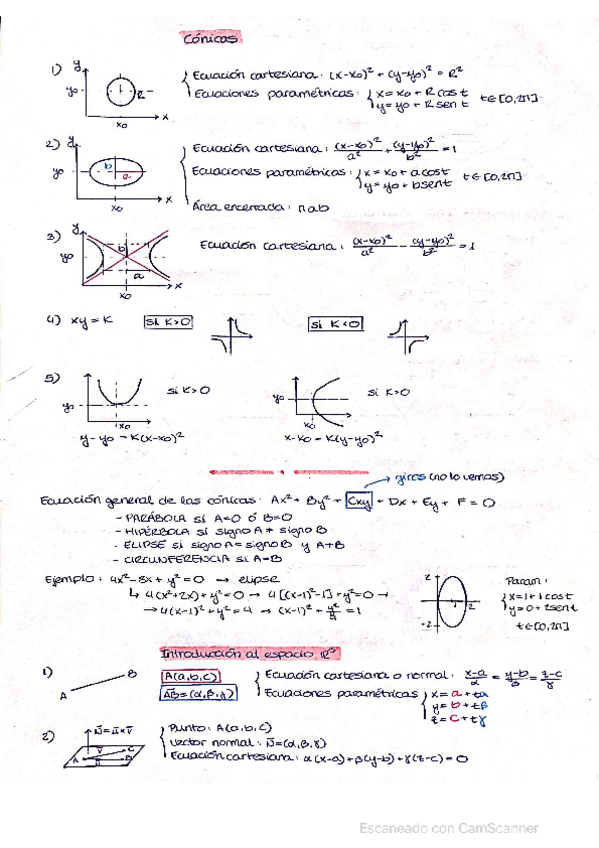 Cónicas
1) y
y₀
R
x₀
x
Ecuación cartesiana: (x-x₀)² + (y-y₀)² = R²
Ecuaciones paramétricas: { x = x₀ + R cos t
y = y₀ + R sen t
t ∈ [0,2π]
2) y
y₀
b
a
x₀
x
Ecuación cartesiana: (x-x₀)²/a² + (y-y₀)²/b² = 1
Ecuaciones paramétricas: { x = x₀ + a cos t
y = y₀ + b sen t
t ∈ [0,2π]
Área encerrada: πab
3) y
y₀
b
a
x₀
x
Ecuación cartesiana: (x-x₀)²/a² - (y-y₀)²/b² = 1
4) xy = K
si K>0
si K<0
5)
y₀
x₀
si K>0
y-y₀ = K(x-x₀)²
y₀
x₀
si K>0
x-x₀ = K(y-y₀)²
→ giros (no lo vemos)
Ecuación general de las cónicas: Ax² + By² + Cxy + Dx + Ey + F = 0
- PARÁBOLA si A=0 ó B=0
- HIPÉRBOLA si signo A ≠ signo B
- ELIPSE si signo A = signo B y A≠B
- CIRCUNFERENCIA si A=B
Ejemplo: 4x² - 8x + y² = 0 → elipse
↳ 4(x²-2x) + y² = 0 → 4[(x-1)²-1] + y² = 0 →
→ 4(x-1)² + y² = 4 → (x-1)² + y²/4 = 1
2
1
2
-2
Param:
{ x = 1 + 1 cos t
y = 0 + 2 sen t
t ∈ [0,2π]
Introducción al espacio ℝ³
1)
A
B
A(a,b,c)
AB = (α,β,γ)
Ecuación cartesiana o normal: x-a/α = y-b/β = z-c/γ
Ecuaciones paramétricas { x = a + tα
y = b + tβ
z = c + tγ
2)
N = u × v
A
v
C
u
B
Punto: A(a,b,c)
Vector normal: N = (α,β,γ)
Ecuación cartesiana: α(x-a) + β(y-b) + γ(z-c) = 0
Escaneado con CamScanner